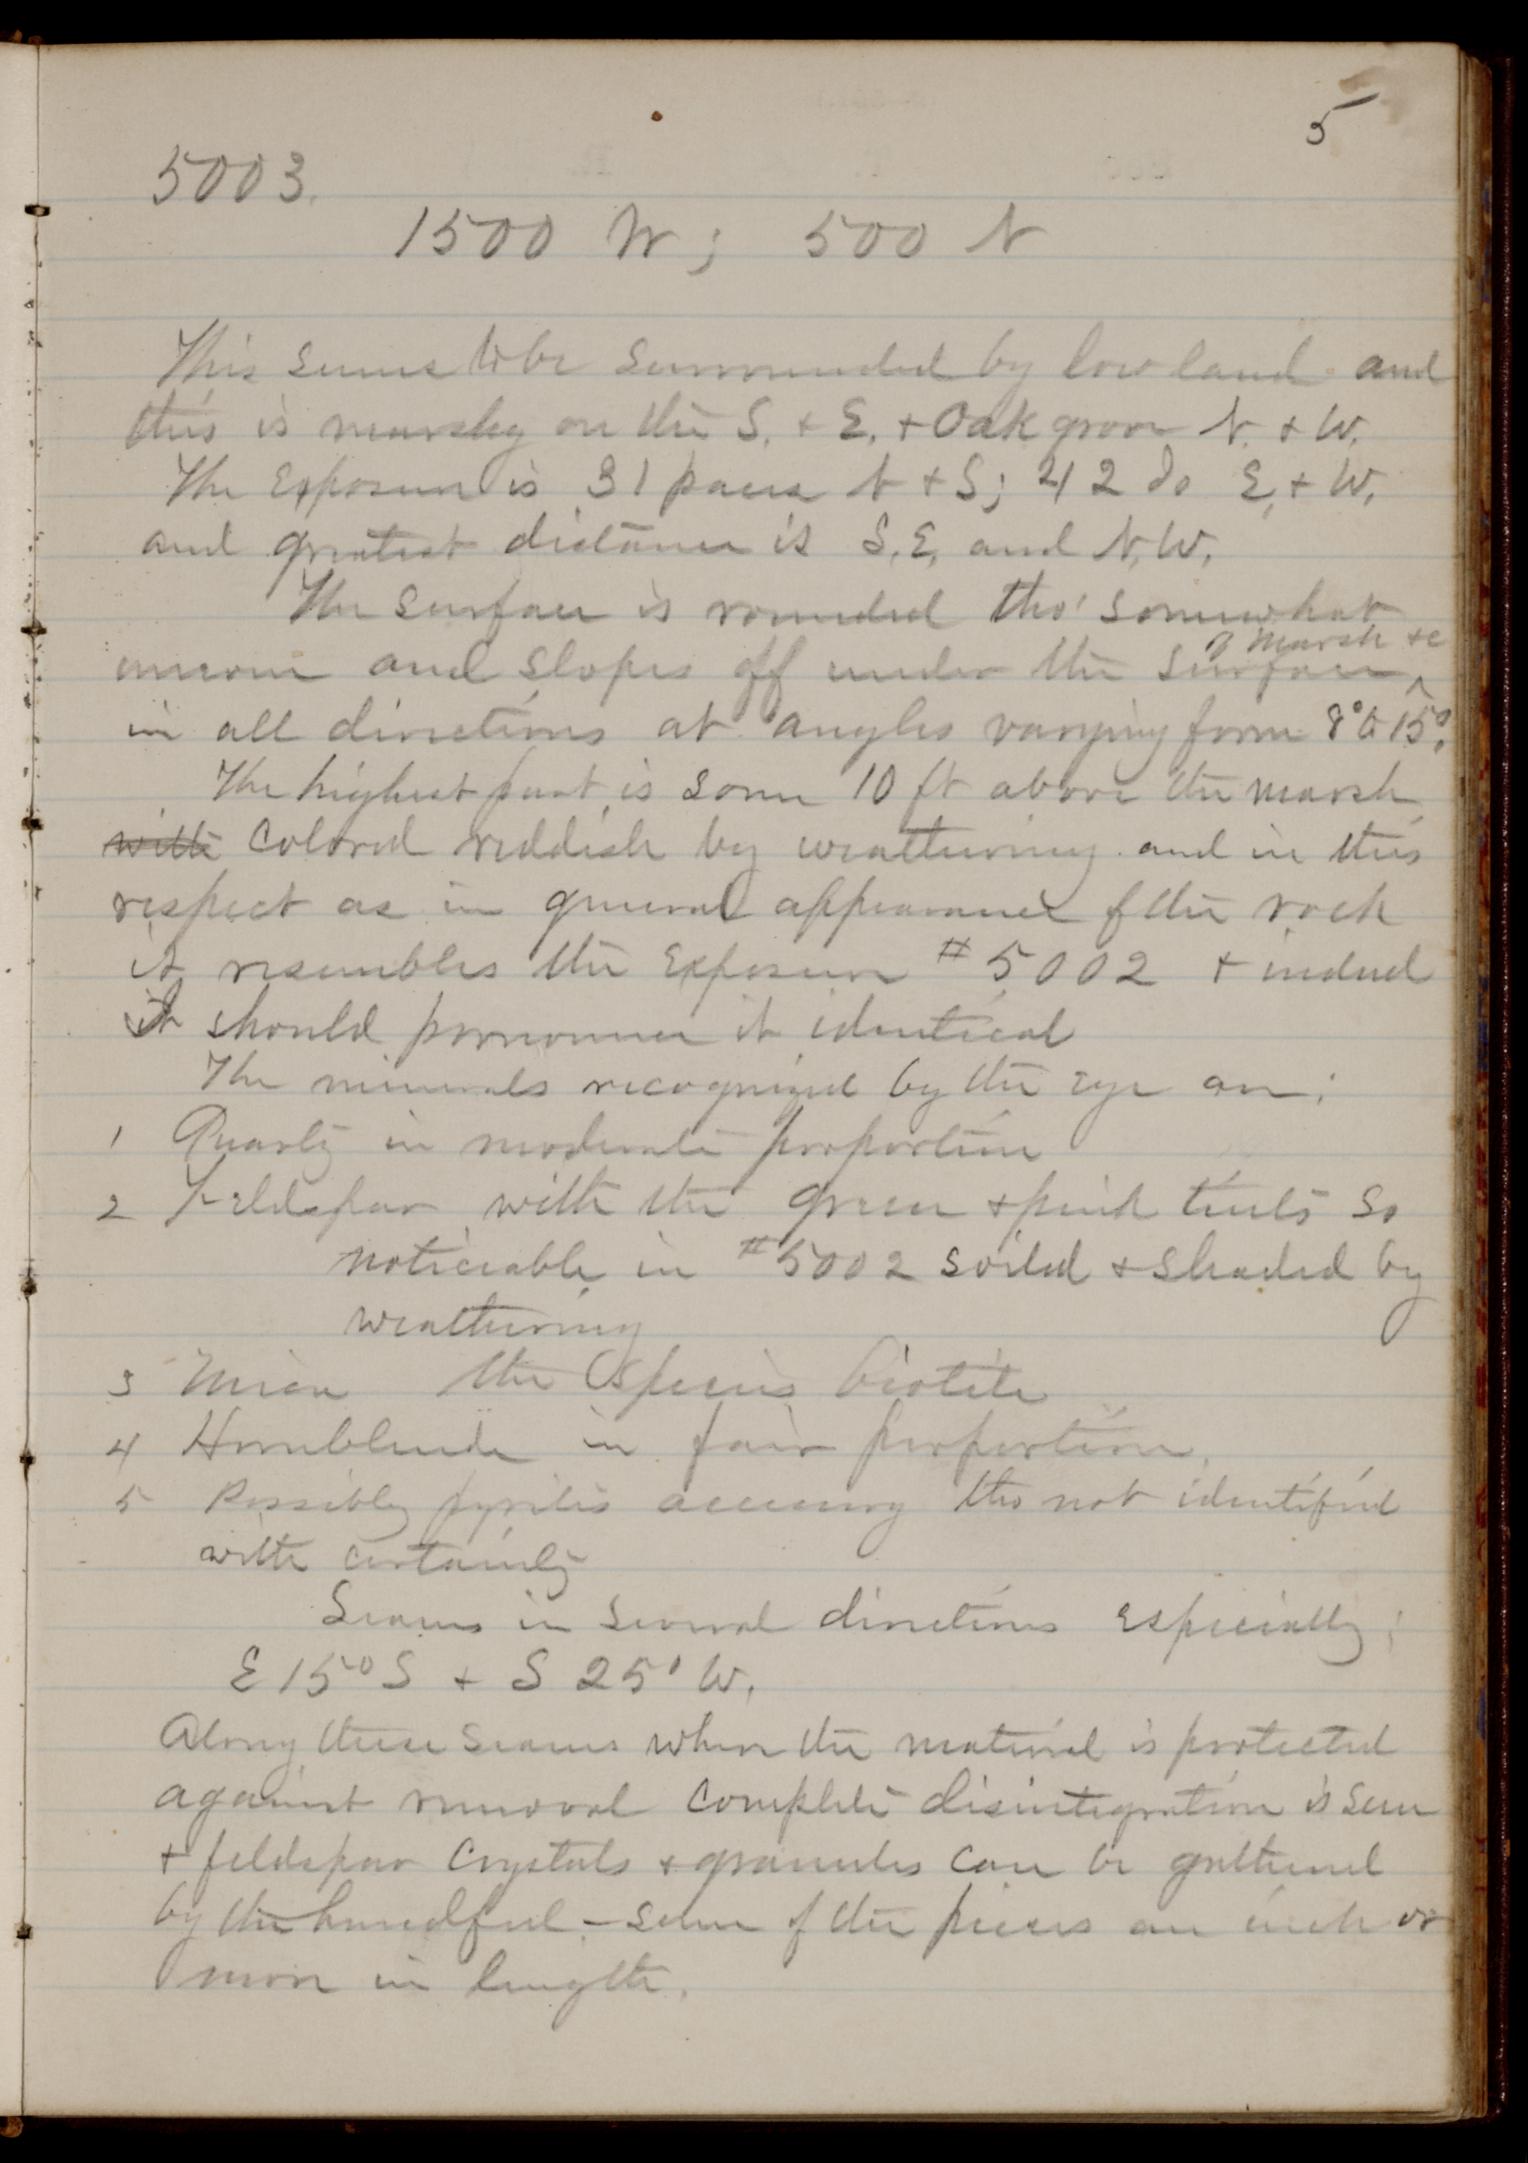 5
5003.
1500 W; 500 N
This seems to be surrounded by low land and
this is marshy on the S. + E. + Oak grove N. + W.
The Exposure is 31 paces N + S; 42 do E. + W.
and greatest distance is S.E. and N.W.
The surface is rounded tho' somewhat
of marsh &c
uneven and slopes off under the surface ^
in all directions at angles varying from 8° to 15°.
The highest part is some 10 ft above the marsh
with colored reddish by weathering and in this
respect as in general appearance of the rock
it resembles the Exposure #5002 + indeed
I should pronounce it identical
The minerals recognized by the eye are:
1 Quartz in moderate proportion
2 Feldspar with the green + pink tints so
noticeable in #5002 soiled + shaded by
weathering
3 Mica the species biotite
4 Hornblende in fair proportion.
5 Possibly pyrites accessory tho not identified
with certainty
Seams in several directions especially;
E 15° S + S 25° W.
Along these seams when the material is protected
against removal complete disintegration is seen
+ feldspar crystals + granules can be gathered
by the handful – some of the pieces an inch or
more in length.